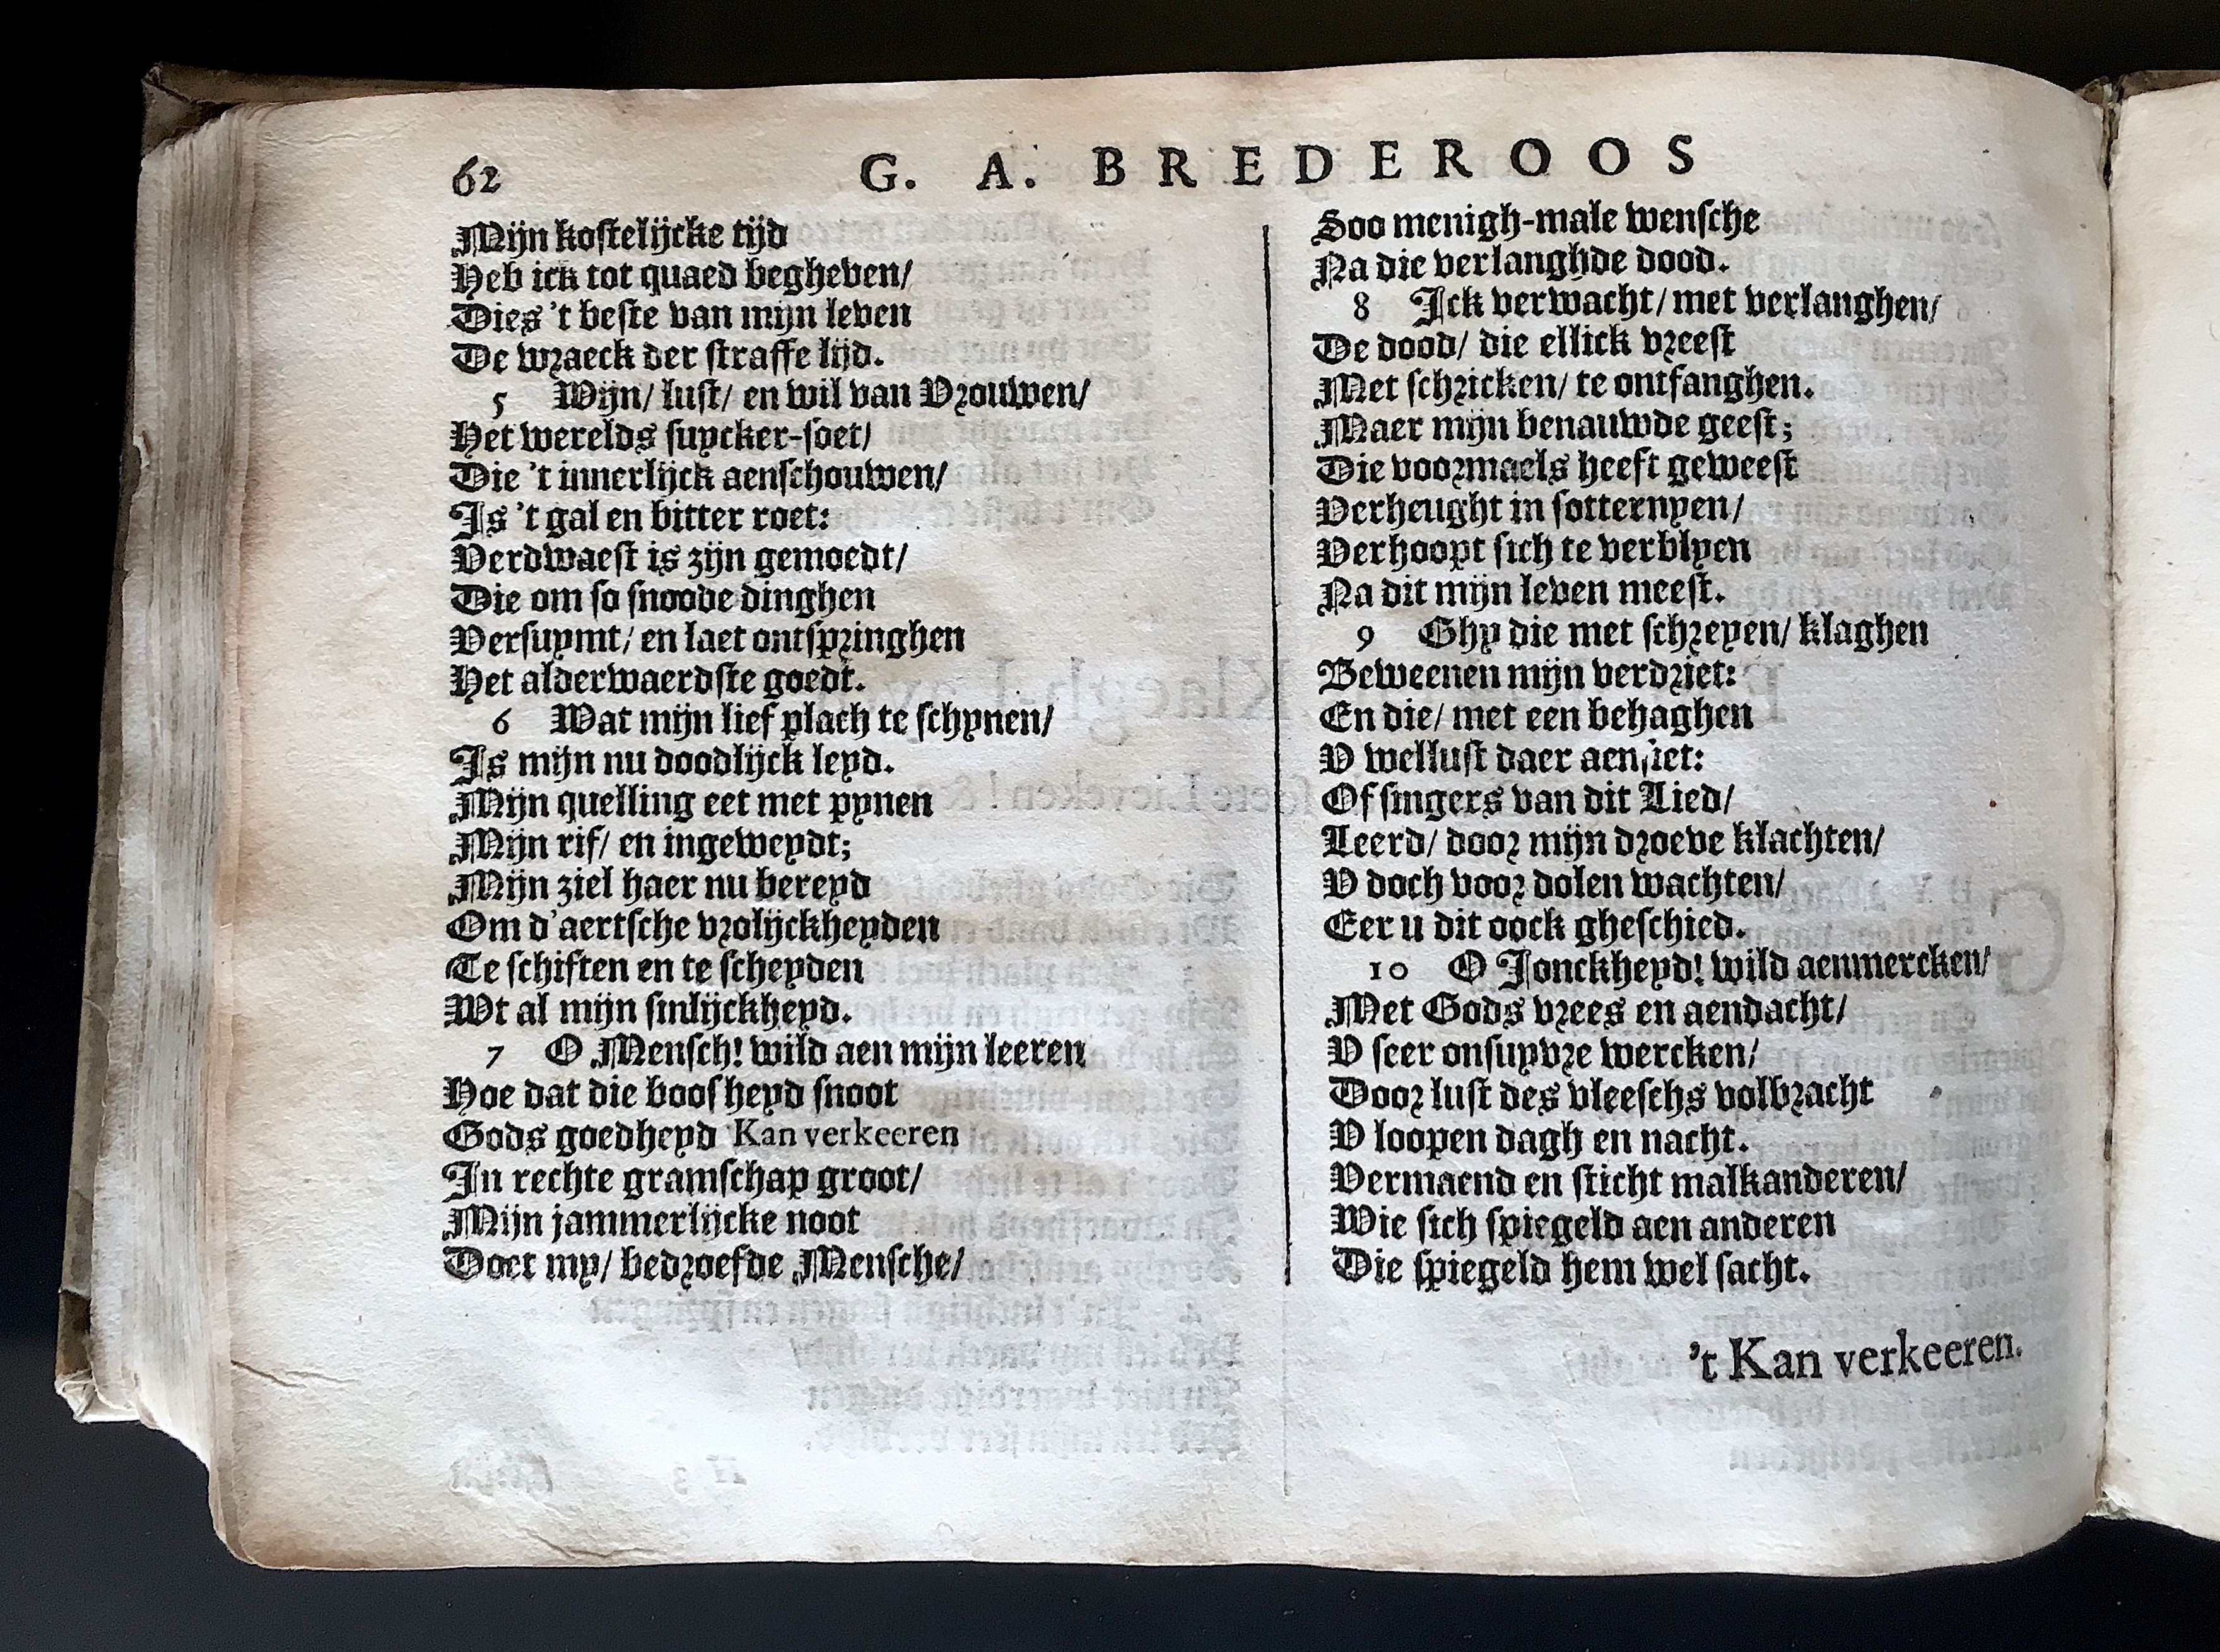 62
G. A. BREDEROOS
Mijn kostelijcke tijd
Heb ick tot quaed begheven/
Dies 't beste van mijn leven
De wraeck der straffe lijd.
5 Wijn/ lust/ en wil van Vrouwen/
Het werelds suycker-soet/
Die 't innerlijck aenschouwen/
Is 't gal en bitter roet:
Verdwaest is zijn gemoedt/
Die om so snoode dinghen
Versuymt/ en laet ontspringhen
Het alderwaerdste goedt.
6 Wat mijn lief plach te schynen/
Is mijn nu doodlijck leyd.
Mijn quelling eet met pynen
Mijn rif/ en ingeweydt;
Mijn ziel haer nu bereyd
Om d'aertsche vrolijckheyden
Te schiften en te scheyden
Wt al mijn sinlijckheyd.
7 O Mensch! wild aen mijn leeren
Hoe dat die boosheyd snoot
Gods goedheyd Kan verkeeren
In rechte gramschap groot/
Mijn jammerlijcke noot
Doet my/ bedroefde Mensche/
Soo menigh-male wensche
Na die verlanghde dood.
8 Ick verwacht/ met verlanghen/
De dood/ die ellick vreest
Met schricken/ te ontfanghen.
Maer mijn benauwde geest;
Die voormaels heeft geweest
Verheught in sotternyen/
Verhoopt sich te verblyen
Na dit mijn leven meest.
9 Ghy die met schreyen/ klaghen
Beweenen mijn verdriet:
En die/ met een behaghen
V wellust daer aensiet:
Of singers van dit Lied/
Leerd/ door mijn droeve klachten/
V doch voor dolen wachten/
Eer u dit oock gheschied.
10 O Jonckheyd! wild aenmercken/
Met Gods vrees en aendacht/
V seer onsuyvre wercken/
Door lust des vleeschs volbracht
V loopen dagh en nacht.
Vermaend en sticht malkanderen/
Wie sich spiegeld aen anderen
Die spiegeld hem wel sacht.
't Kan verkeeren.